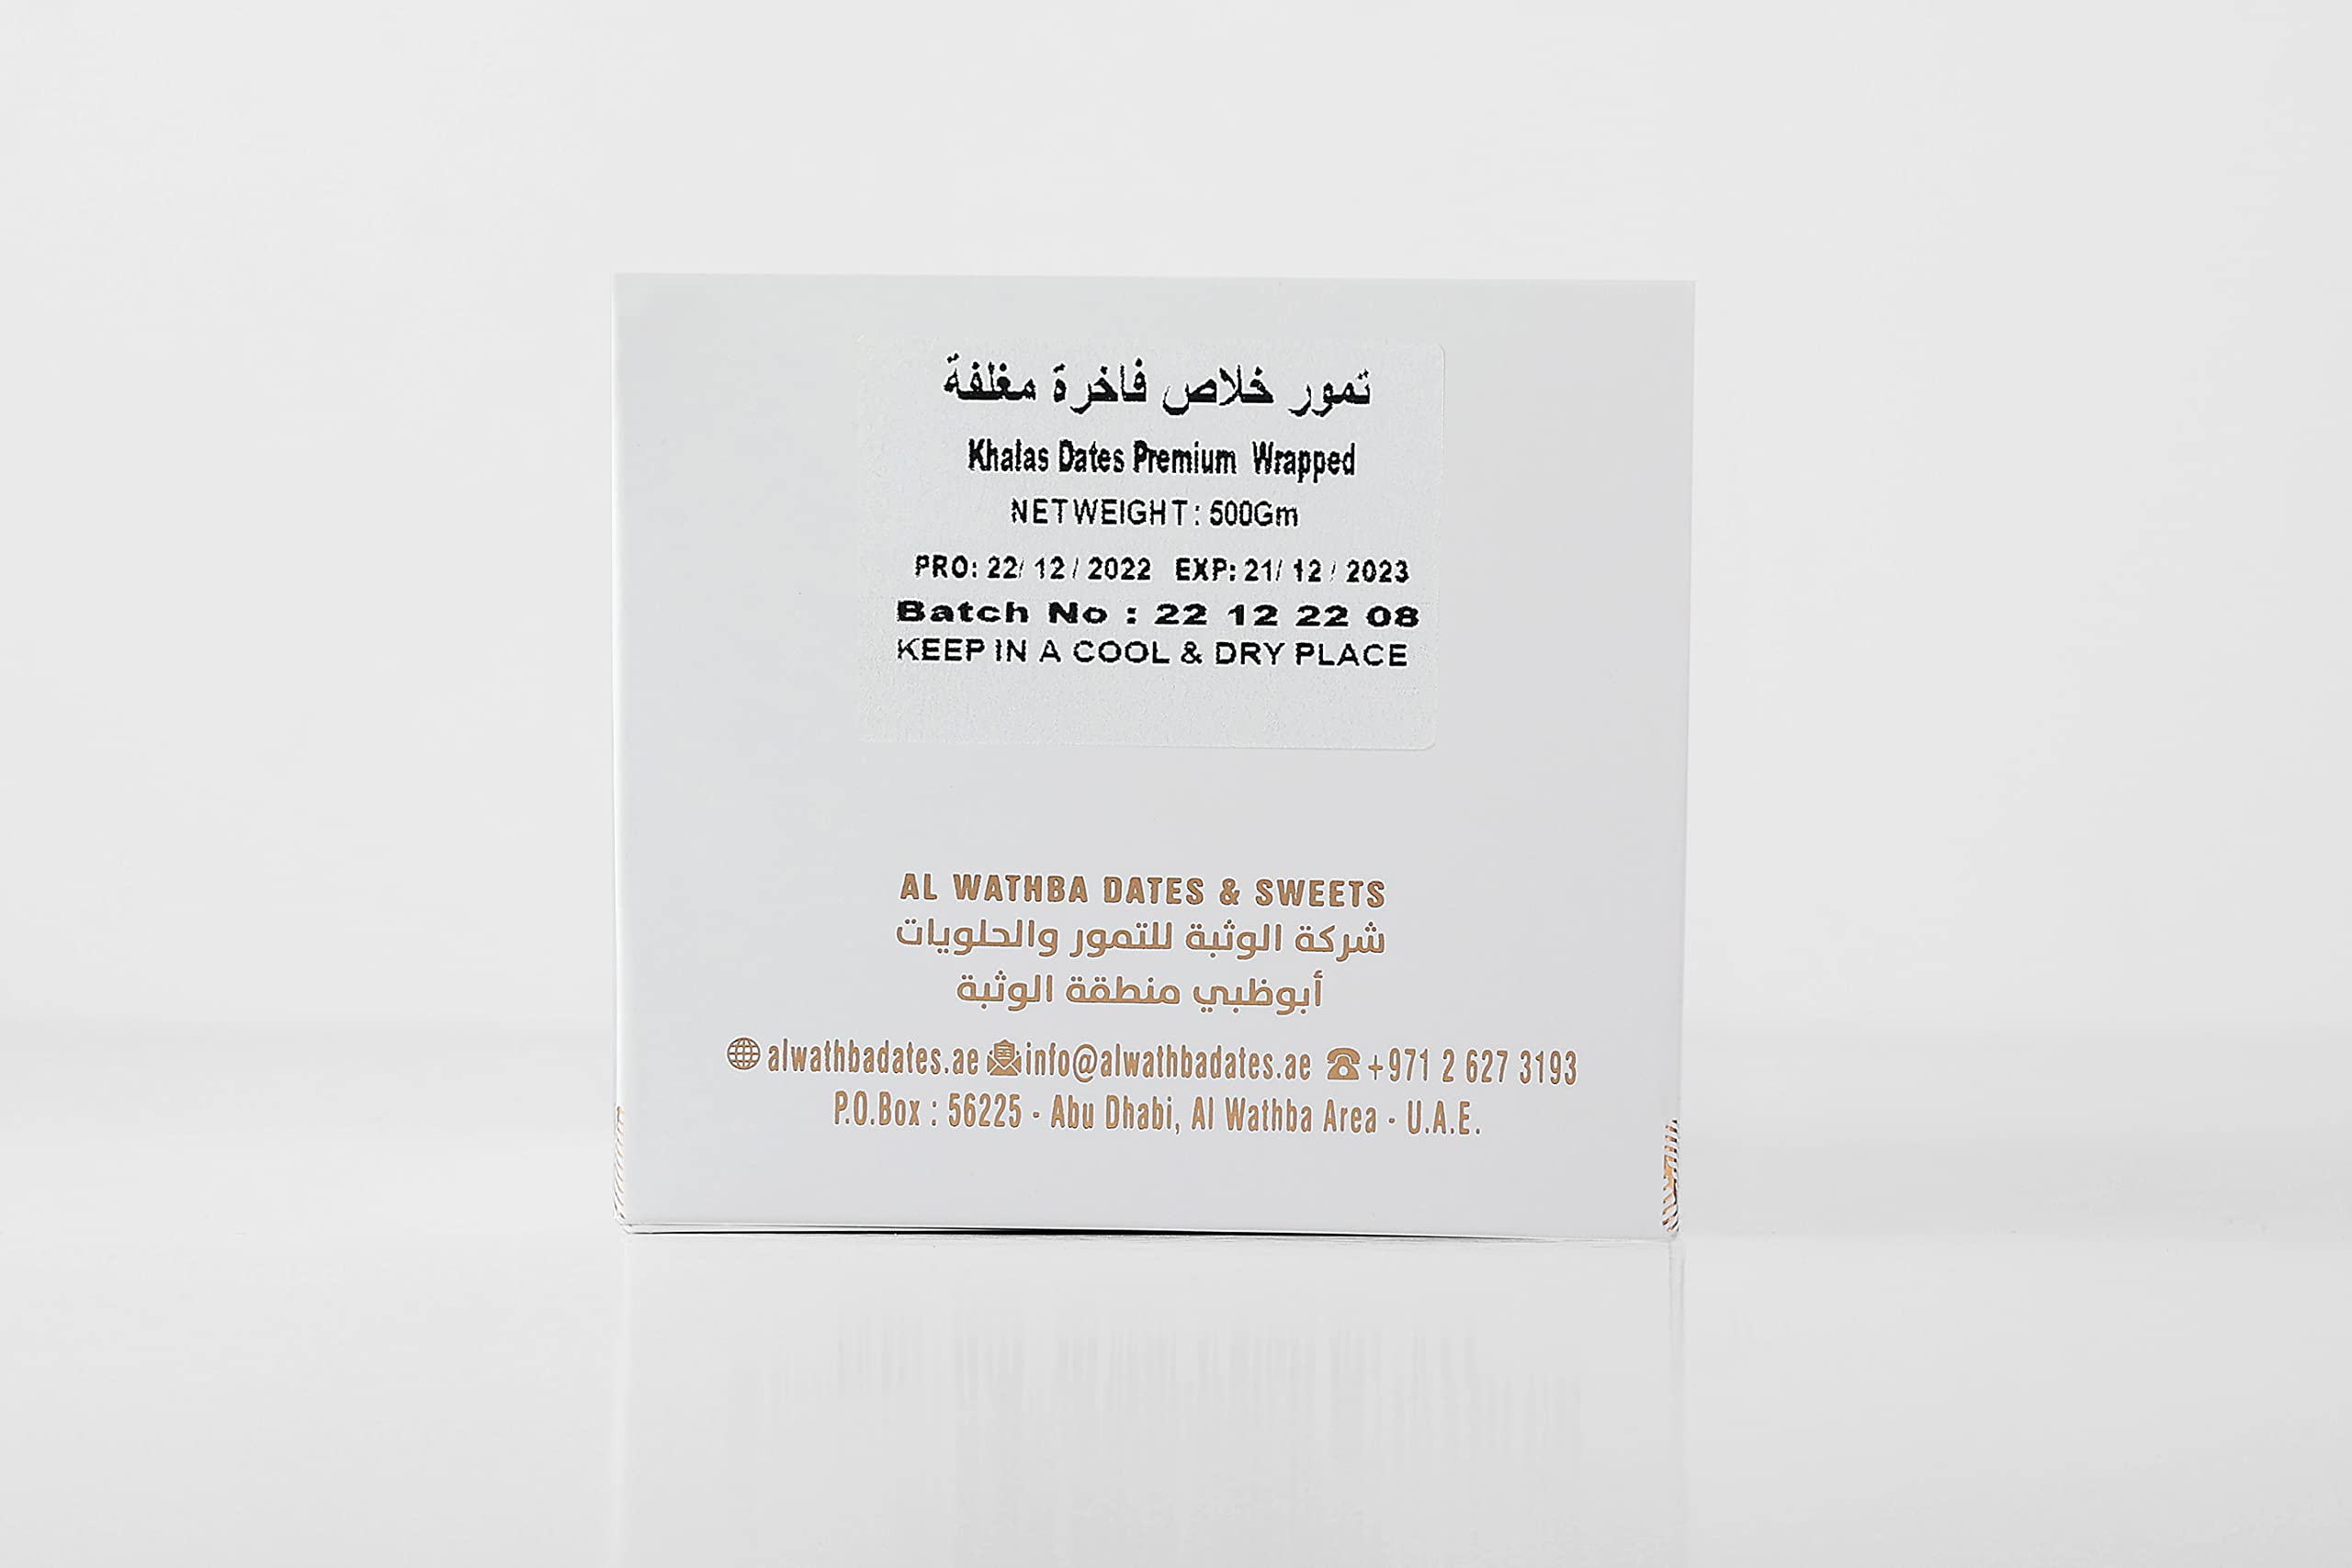 تمور خلاص فاخرة مغلفة
Khalas Dates Premium Wrapped
NETWEIGHT: 500Gm
PRO: 22/ 12 / 2022 EXP: 21/ 12 / 2023
Batch No : 22 12 22 08
KEEP IN A COOL & DRY PLACE
AL WATHBA DATES & SWEETS
شركة الوثبة للتمور والحلويات
أبوظبي منطقة الوثبة
alwathbadates.ae info@alwathbadates.ae +971 2 627 3193
P.O.Box : 56225 - Abu Dhabi, Al Wathba Area - U.A.E.